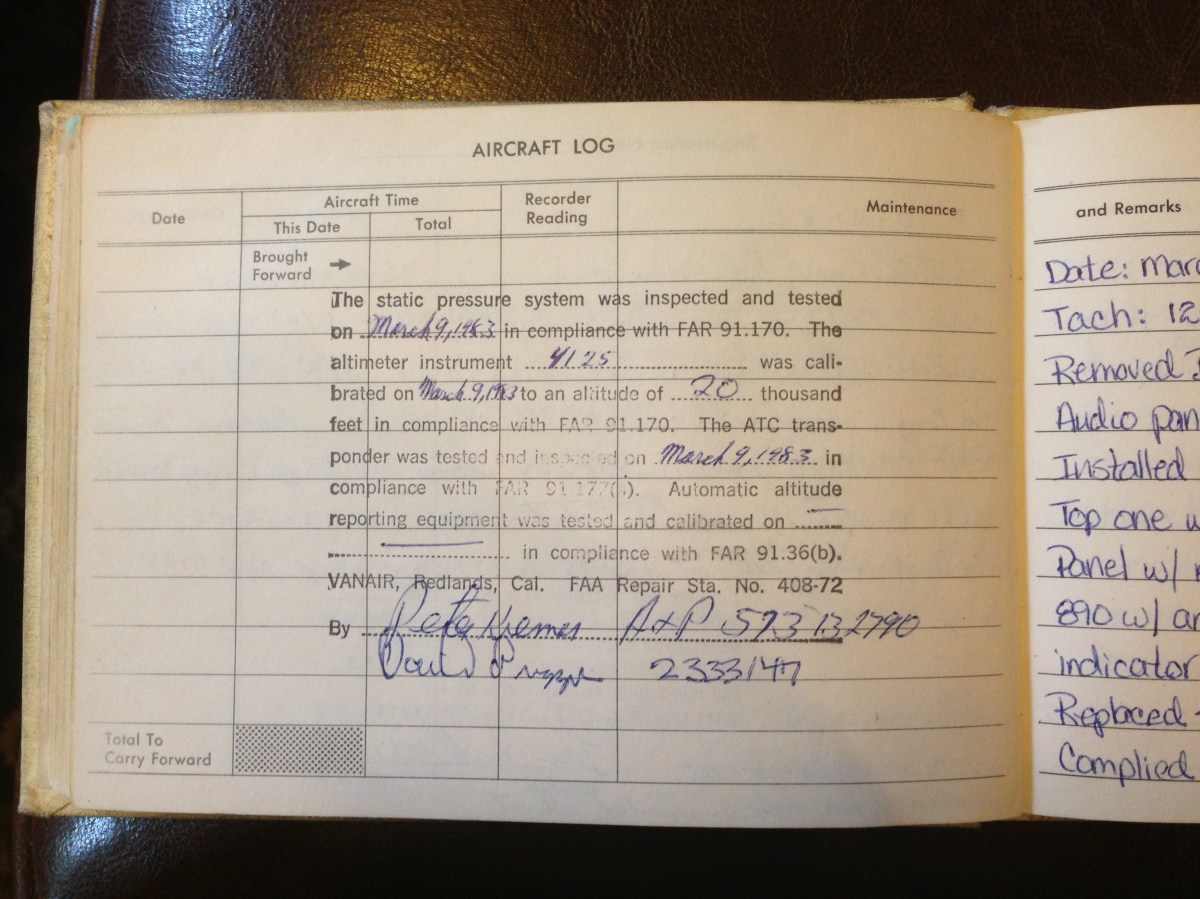 AIRCRAFT LOG
Date
Aircraft Time
This Date
Total
Recorder
Reading
Maintenance
Brought
Forward
The static pressure system was inspected and tested
on March 9, 1983 in compliance with FAR 91.170. The
altimeter instrument 4125 was cali-
brated on March 9, 1983 to an altitude of 20 thousand
feet in compliance with FAR 91.170. The ATC trans-
ponder was tested and inspected on March 9, 1983 in
compliance with FAR 91.177( ). Automatic altitude
reporting equipment was tested and calibrated on
in compliance with FAR 91.36(b).
VANAIR, Redlands, Cal. FAA Repair Sta. No. 408-72
By Peter A&P 573132790
David 2333147
Total To
Carry Forward
and Remarks
Date: Marc
Tach: 12
Removed
Audio pan
Installed
Top one w
Panel w/
890 w/ an
indicator
Replaced -
Complied